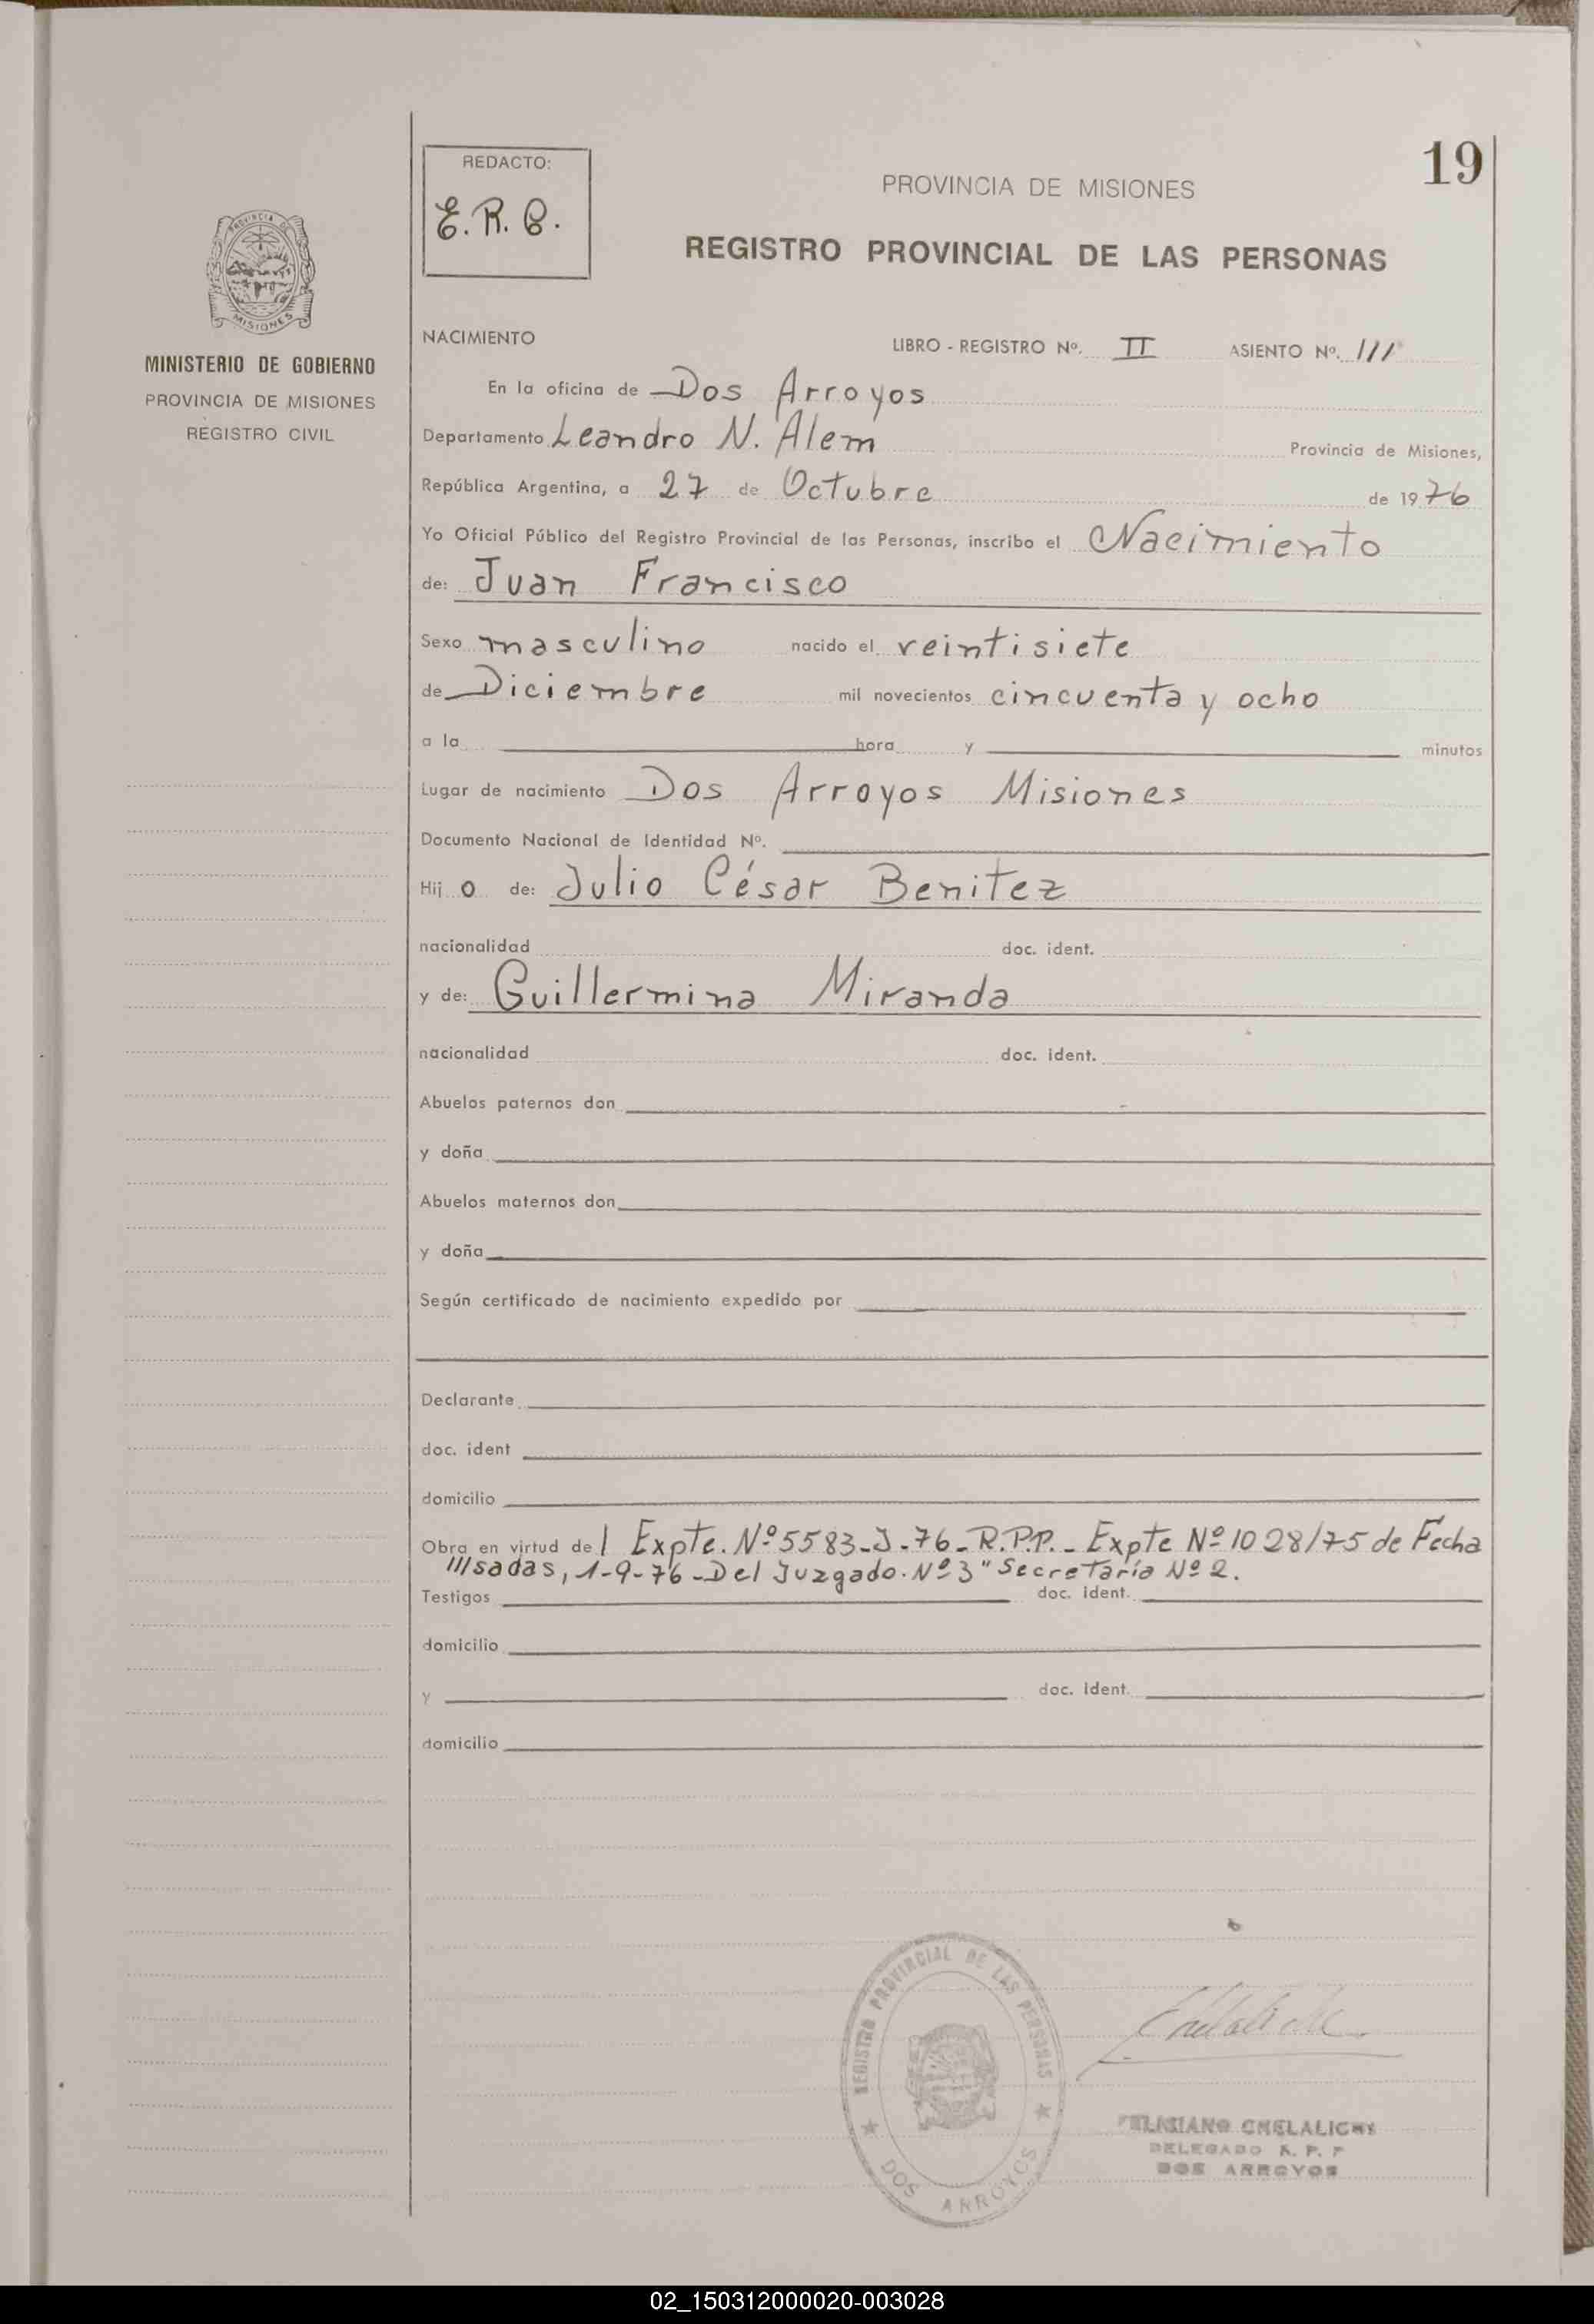 REDACTO:
E. R. B.
19
PROVINCIA DE MISIONES
REGISTRO PROVINCIAL DE LAS PERSONAS
PROVINCIA DE
MISIONES
MINISTERIO DE GOBIERNO
PROVINCIA DE MISIONES
REGISTRO CIVIL
NACIMIENTO LIBRO - REGISTRO Nº. II ASIENTO Nº. 111
En la oficina de Dos Arroyos
Departamento Leandro N. Alem Provincia de Misiones,
República Argentina, a 27 de Octubre de 1976
Yo Oficial Público del Registro Provincial de las Personas, inscribo el Nacimiento
de: Juan Francisco
Sexo masculino nacido el veintisiete
de Diciembre mil novecientos cincuenta y ocho
a la hora y minutos
Lugar de nacimiento Dos Arroyos Misiones
Documento Nacional de Identidad Nº.
Hij o de: Julio César Benitez
nacionalidad doc. ident.
y de: Guillermina Miranda
nacionalidad doc. ident.
Abuelos paternos don
y doña
Abuelos maternos don
y doña
Según certificado de nacimiento expedido por
Declarante
doc. ident
domicilio
Obra en virtud del Expte. Nº 5583-J-76-R.P.P.- Expte Nº 1028/75 de Fecha
///sadas, 1-9-76-Del Juzgado. Nº 3" Secretaría Nº 2.
Testigos doc. ident.
domicilio
y doc. ident.
domicilio
REGISTRO PROVINCIAL DE LAS PERSONAS
DOS ARROYOS
CHELALICHY
DELEGADO R. P. P
DOS ARROYOS
02_150312000020-003028